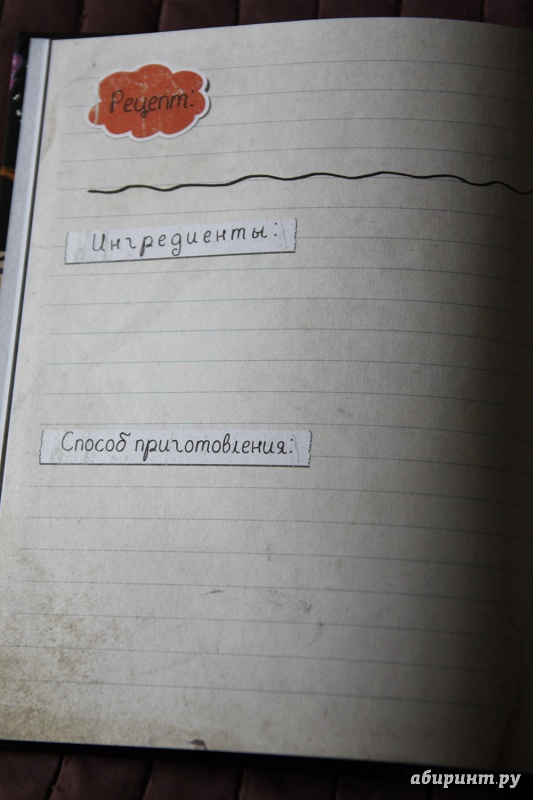 Рецепт:
Ингредиенты:
Способ приготовления:
абиринт.ру